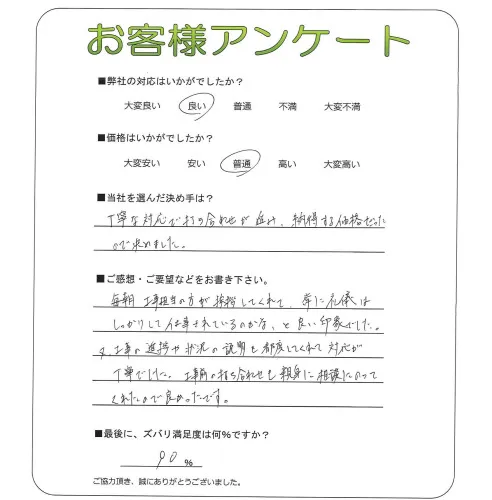 お客様アンケート
■弊社の対応はいかがでしたか?
大変良い 良い 普通 不満 大変不満
■価格はいかがでしたか?
大変安い 安い 普通 高い 大変高い
■当社を選んだ決め手は?
丁寧な対応で打ち合わせが進み、納得する価格だった
ので決めました。
■ご感想・ご要望などをお書き下さい。
毎朝 工事担当の方が挨拶してくれて、常に礼儀は
しっかりして仕事されているのかな、と良い印象でした。
又、工事の進捗や状況の説明も都度してくれて対応が
丁寧でした。工事前の打ち合わせも親身に相談にのって
くれたので良かったです。
■最後に、ズバリ満足度は何%ですか?
90 %
ご協力頂き、誠にありがとうございました。